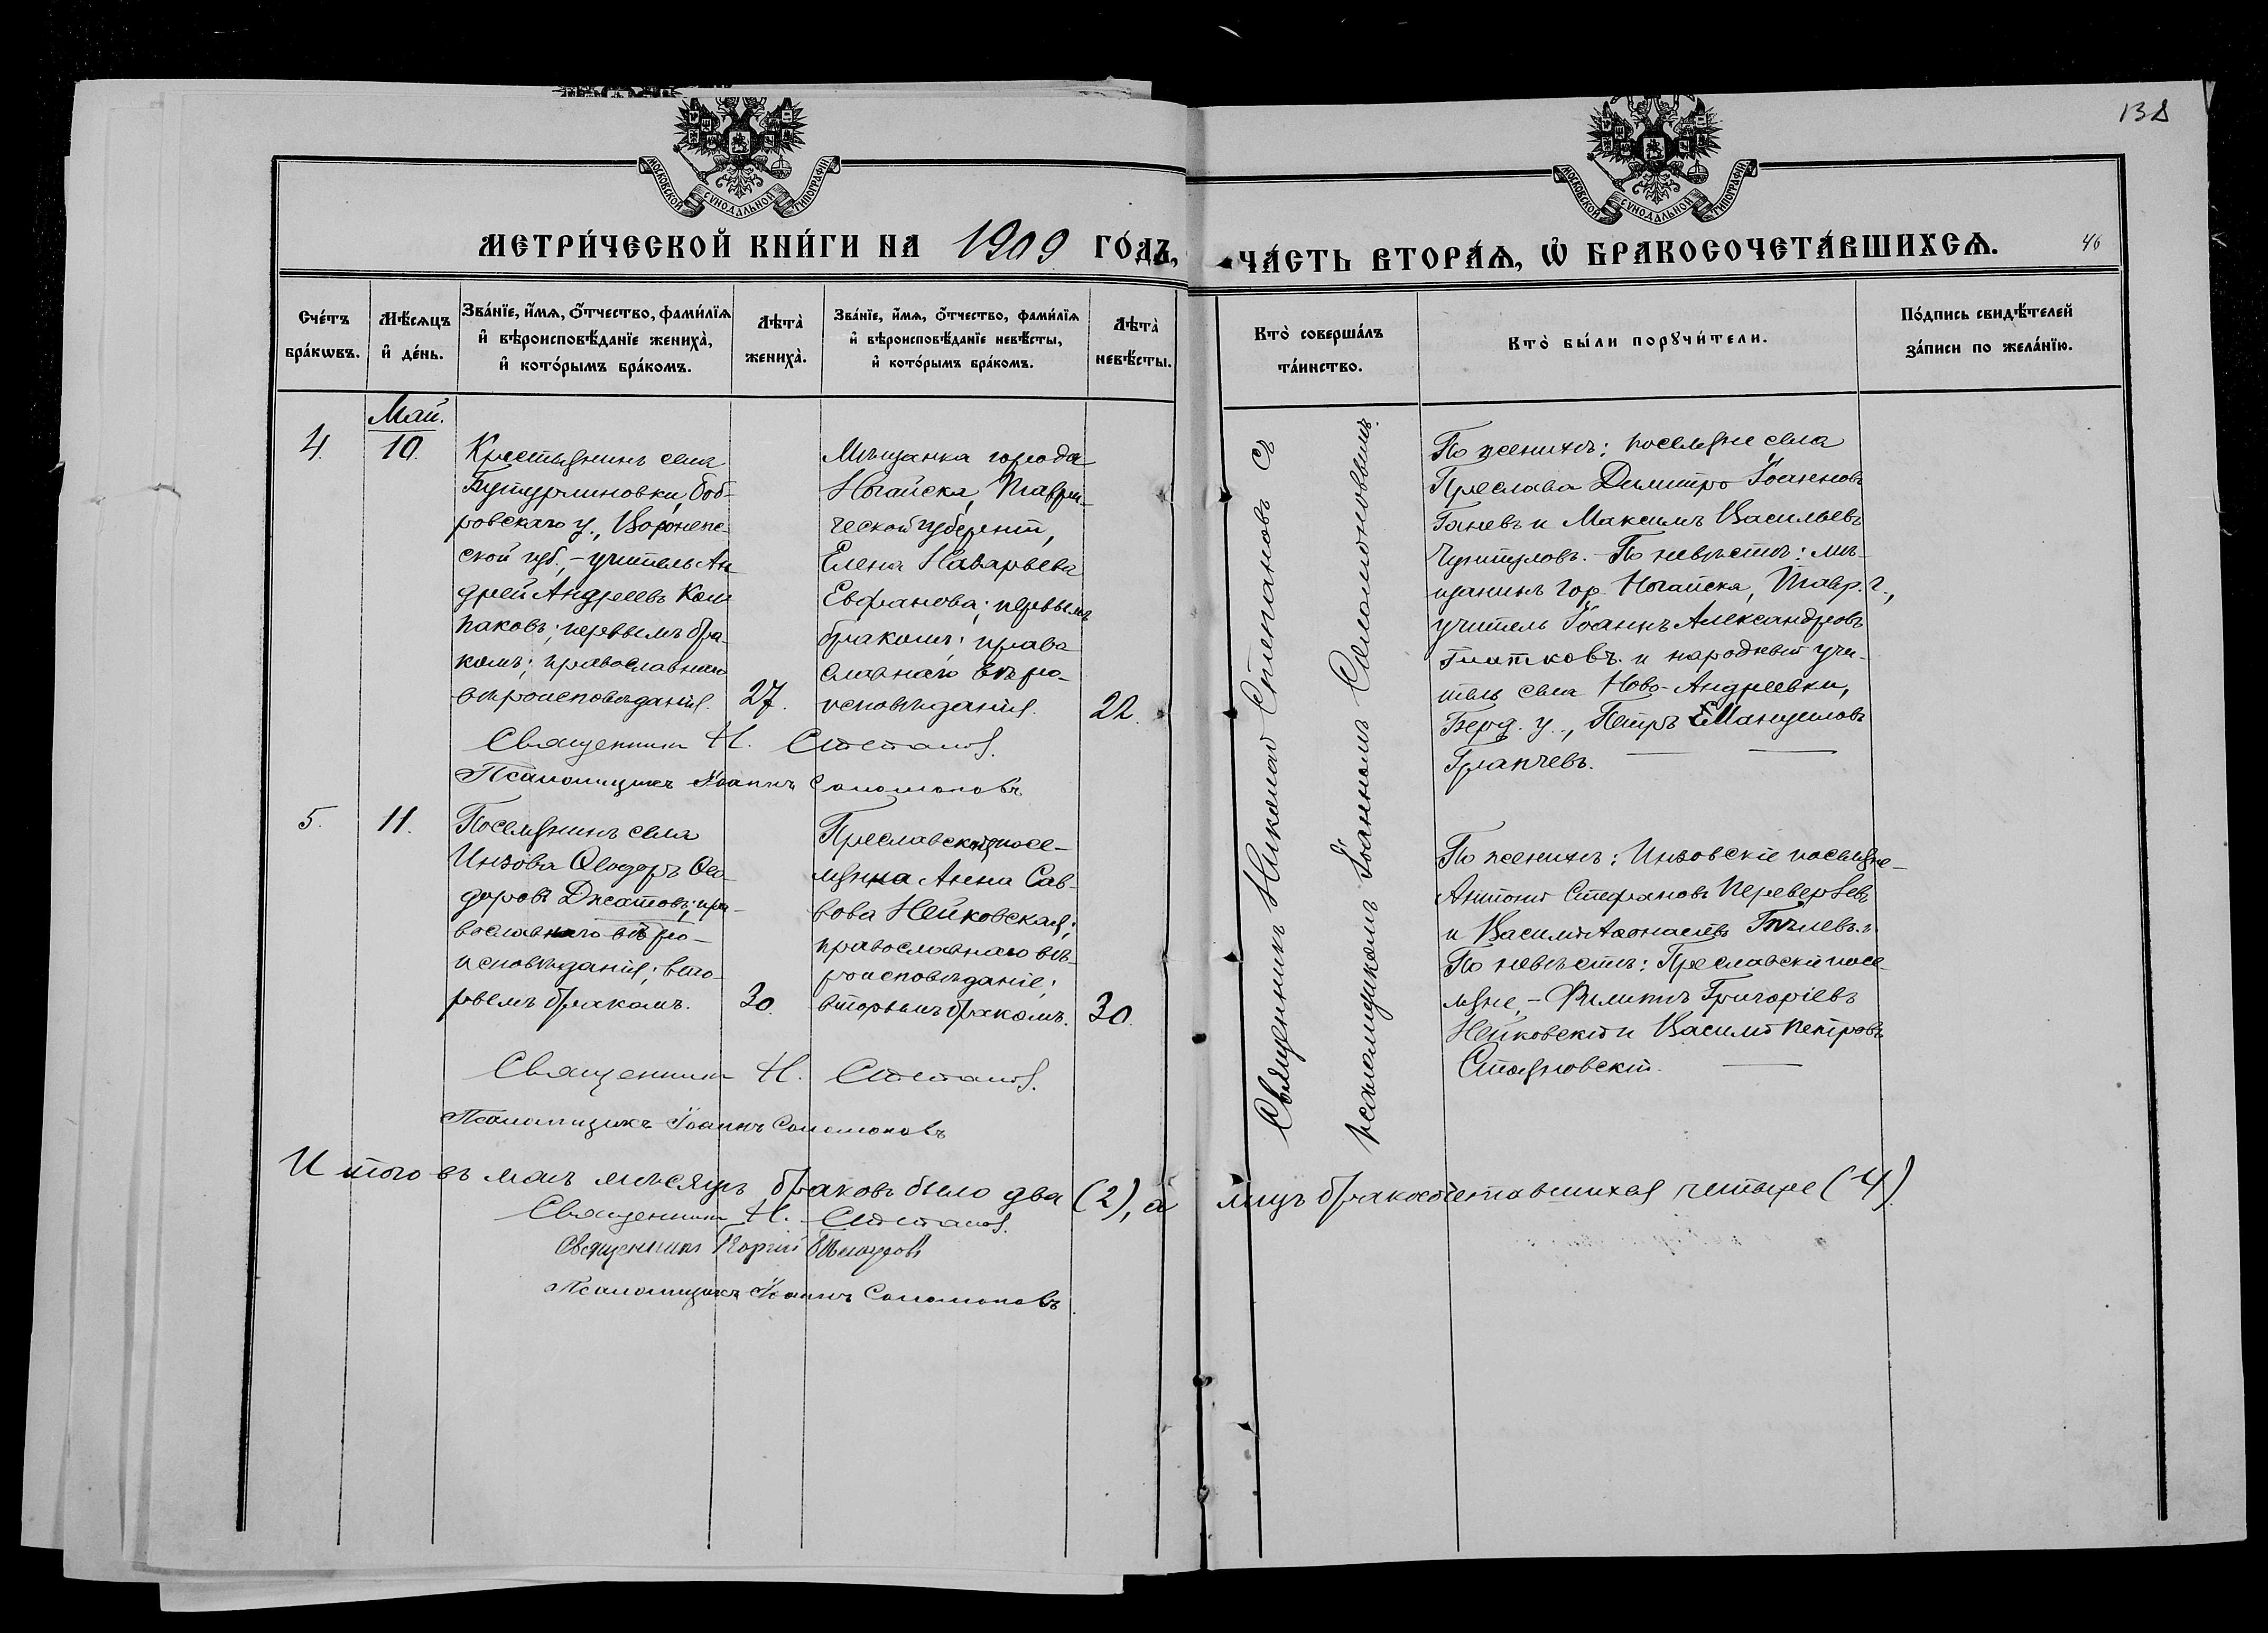 138
МОСКОВСКОЙ СѴНОДАЛЬНОЙ ТИПОГРАФІИ
МОСКОВСКОЙ СѴНОДАЛЬНОЙ ТИПОГРАФІИ
МЕТРИ́ЧЕСКОЙ КНИ́ГИ НА 1909 ГО́ДЪ,
ЧА́СТЬ ВТОРА́Ѧ, Ѽ БРАКОСОЧЕТА́ВШИХСѦ.
46
Сче́тъ бра́кѡвъ.
Мѣ́сѧцъ и҆ де́нь.
Зва́нїе, и҆́мѧ, ѻ҆́тчество, фами́лїѧ и҆ вѣроисповѣ́данїе жениха̀, и҆ кото́рымъ бра́комъ.
Лѣта̀ жениха̀.
Зва́нїе, и҆́мѧ, ѻ҆́тчество, фами́лїѧ и҆ вѣроисповѣ́данїе невѣ́сты, и҆ кото́рымъ бра́комъ.
Лѣта̀ невѣ́сты.
Кто̀ соверша́лъ та́инство.
Кто̀ бы́ли порꙋчи́тели.
По́дпись свидѣ́телей за́писи по жела́нїю.
4.
Май.
10.
Крестьянинъ села
Бутурлиновки, Боб-
ровскаго у., Воронеж-
ской губ., – учитель Ан
дрей Андреевъ Кол
паковъ; первымъ бра-
комъ; православнаго
вѣроисповѣданія.
27.
Мѣщанка города
Ногайска, Таври-
ческой губерніи,
Елена Назарьева
Евфанова; первымъ
бракомъ; право
славнаго вѣро-
исповѣданія.
22.
Священник Н. Степанов.
Псаломщикъ Іоаннъ Соломоновъ
Священникъ Николай Степановъ съ
псаломщикомъ Іоанномъ Соломоновымъ.
По женихѣ: поселяне села
Преслава Димитро Іоанновъ
Ганевъ и Максимъ Васильевъ
Чунтуловъ. – По невѣстѣ: мѣ-
щанинъ гор. Ногайска, Тавр. г.,
учитель Іоаннъ Александровъ
Гнатковъ и народный учи-
тель села Ново-Андреевки,
Берд. у., Петръ Мануиловъ
Грапчевъ.
5.
11.
Поселянинъ села
Инзова Ѳеодоръ Ѳео-
доровъ Джатовъ; пра-
вославнаго вѣро-
исповѣданія; вто-
рымъ бракомъ.
30.
Преславская посе-
лянка Анна Сав-
вова Нейковская;
православнаго вѣ-
роисповѣданіе;
вторымъ бракомъ.
30.
Священник Н. Степанов.
Псаломщикъ Іоаннъ Соломоновъ
По женихѣ: Инзовскіе поселяне –
Антоній Стефановъ Переверзевъ
и Василій Аѳонасіевъ Тѣлевъ.
По невѣстѣ: Преславскіе посе-
ляне, – Филиппъ Григоріевъ
Нейковскій и Василій Петровъ
Стояновскій.
Итого въ маѣ мѣсяцѣ браковъ было два (2), а лицъ бракосочетавшихся четыре (4).
Священник Н. Степанов.
Священникъ Георгій
Псаломщикъ Іоаннъ Соломоновъ.